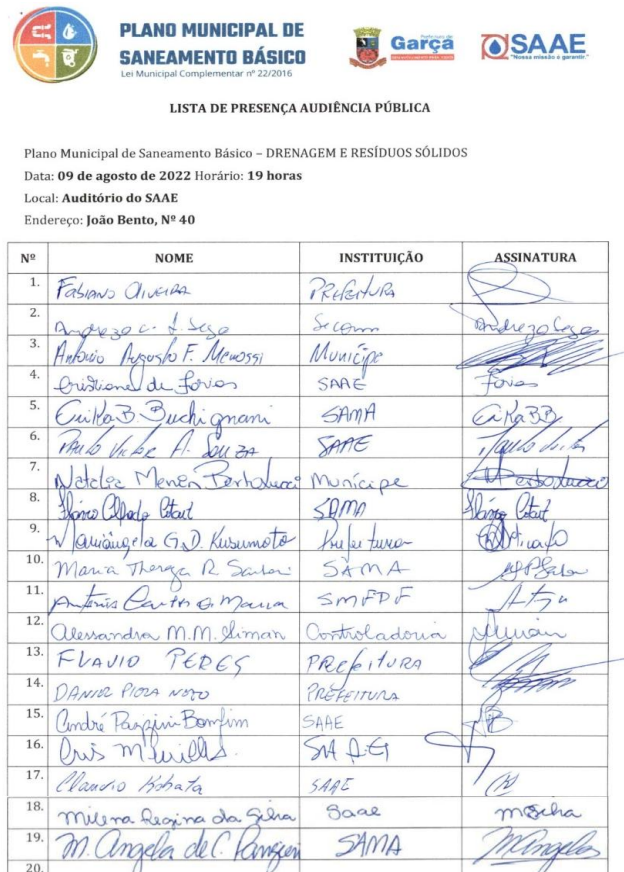 PLANO MUNICIPAL DE
SANEAMENTO BÁSICO
Lei Municipal Complementar nº 22/2016
Prefeitura de
Garça
SAAE
"Nossa missão é garantir"
LISTA DE PRESENÇA AUDIÊNCIA PÚBLICA
Plano Municipal de Saneamento Básico – DRENAGEM E RESÍDUOS SÓLIDOS
Data: 09 de agosto de 2022 Horário: 19 horas
Local: Auditório do SAAE
Endereço: João Bento, Nº 40
Nº NOME INSTITUIÇÃO ASSINATURA
1. FABIANO OLIVEIRA PREFEITURA
2. Andreza C. Secom Andreza
3. Antonio Augusto F. Menossi Munícipe
4. Cristiane de Farias SAAE Farias
5. Erika B. Buchignani SAMA Erika BB
6. Paulo Victor A. SOUZA SAAE Paulo Victor
7. Natalia Bertolucci Munícipe Bertolucci
8. Flávio SAMA Flávio
9. Mariângela G.D. Kusumoto Prefeitura
10. Maria Thereza R. SAMA
11. Antonio SMFPF
12. Alessandra M.M. Controladoria
13. FLAVIO PERES PREFEITURA
14. DANIEL PREFEITURA
15. André Bomfim SAAE
16. Cris
17. Claudio SAAE
18. Milena Regina da Silva Saae MSilva
19. M. Angela de C. SAMA MAngela
20.